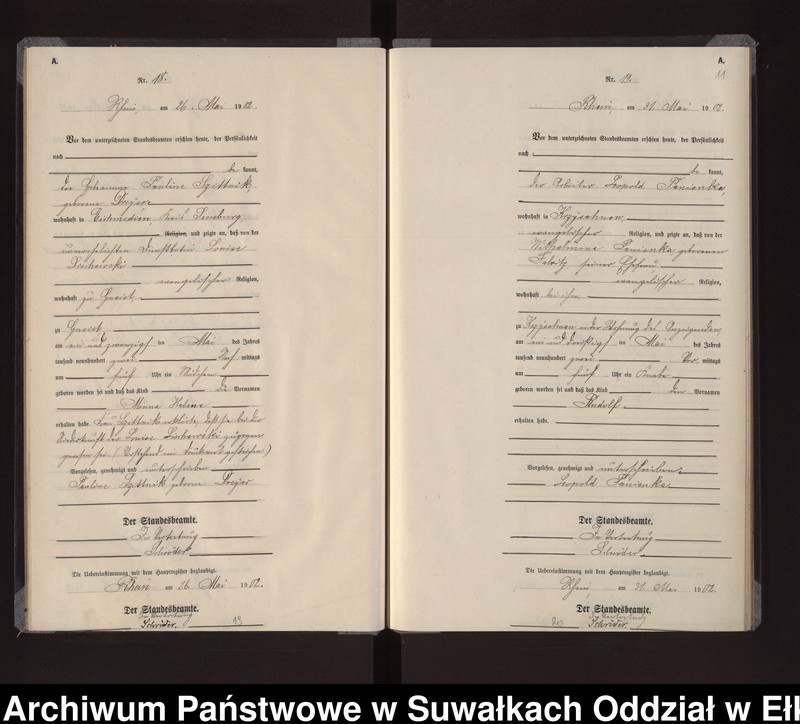 A.
Nr. 18.
Rhein, am 26. Mai 1902.
Vor dem unterzeichneten Standesbeamten erschien heute, der Persönlichkeit
nach
be kannt,
die Hebamme Pauline Szittnik,
geborene Dreyer
wohnhaft in Eichmedien, Kreis Sensburg,
Religion, und zeigte an, daß von der
unverehelichten Dienstbotin Louise
evangelischer Religion,
wohnhaft zu
zu
am ein und zwanzigsten Mai des Jahres
tausend neunhundert zwei Nach mittags
um fünf Uhr ein Mädchen
geboren worden sei und daß das Kind die Vornamen
Minna Helene
erhalten habe. Frau Szittnik erklärte, daß sie bei der
Niederkunft der Louise zugegen
gewesen sei. (Vorstehend ein Druckwort gestrichen)
Vorgelesen, genehmigt und unterschrieben
Pauline Szittnik geborene Dreyer
Der Standesbeamte.
In Vertretung
Schröder
Die Uebereinstimmung mit dem Hauptregister beglaubigt.
Rhein am 26. Mai 1902.
Der Standesbeamte.
In Vertretung
Schröder.
19
A.
11
Nr. 19.
Rhein, am 31. Mai 1902.
Vor dem unterzeichneten Standesbeamten erschien heute, der Persönlichkeit
nach
be kannt,
der Arbeiter Leopold Panienka,
wohnhaft in
evangelischer Religion, und zeigte an, daß von der
Wilhelmine Panienka geborenen
seiner Ehefrau,
evangelischer Religion,
wohnhaft bei ihm
zu in der Wohnung des Anzeigenden
am ein und dreißigsten Mai des Jahres
tausend neunhundert zwei Vor mittags
um fünf Uhr ein Knabe
geboren worden sei und daß das Kind den Vornamen
Rudolf
erhalten habe.
Vorgelesen, genehmigt und unterschrieben
Leopold Panienka
Der Standesbeamte.
In Vertretung
Schröder
Die Uebereinstimmung mit dem Hauptregister beglaubigt.
Rhein, am 31. Mai 1902.
Der Standesbeamte.
In Vertretung
Schröder.
20
Archiwum Państwowe w Suwałkach Oddział w Eł